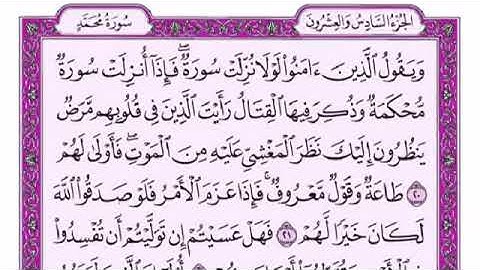 الجزء السادس والعشرون
سورة محمد
وَيَقُولُ ٱلَّذِينَ ءَامَنُوا۟ لَوْلَا نُزِّلَتْ سُورَةٌ ۖ فَإِذَآ أُنزِلَتْ سُورَةٌ
مُّحْكَمَةٌ وَذُكِرَ فِيهَا ٱلْقِتَالُ ۙ رَأَيْتَ ٱلَّذِينَ فِى قُلُوبِهِم مَّرَضٌ
يَنظُرُونَ إِلَيْكَ نَظَرَ ٱلْمَغْشِىِّ عَلَيْهِ مِنَ ٱلْمَوْتِ ۖ فَأَوْلَىٰ لَهُمْ
٢٠ طَاعَةٌ وَقَوْلٌ مَّعْرُوفٌ ۚ فَإِذَا عَزَمَ ٱلْأَمْرُ فَلَوْ صَدَقُوا۟ ٱللَّهَ
لَكَانَ خَيْرًا لَّهُمْ ٢١ فَهَلْ عَسَيْتُمْ إِن تَوَلَّيْتُمْ أَن تُفْسِدُوا۟